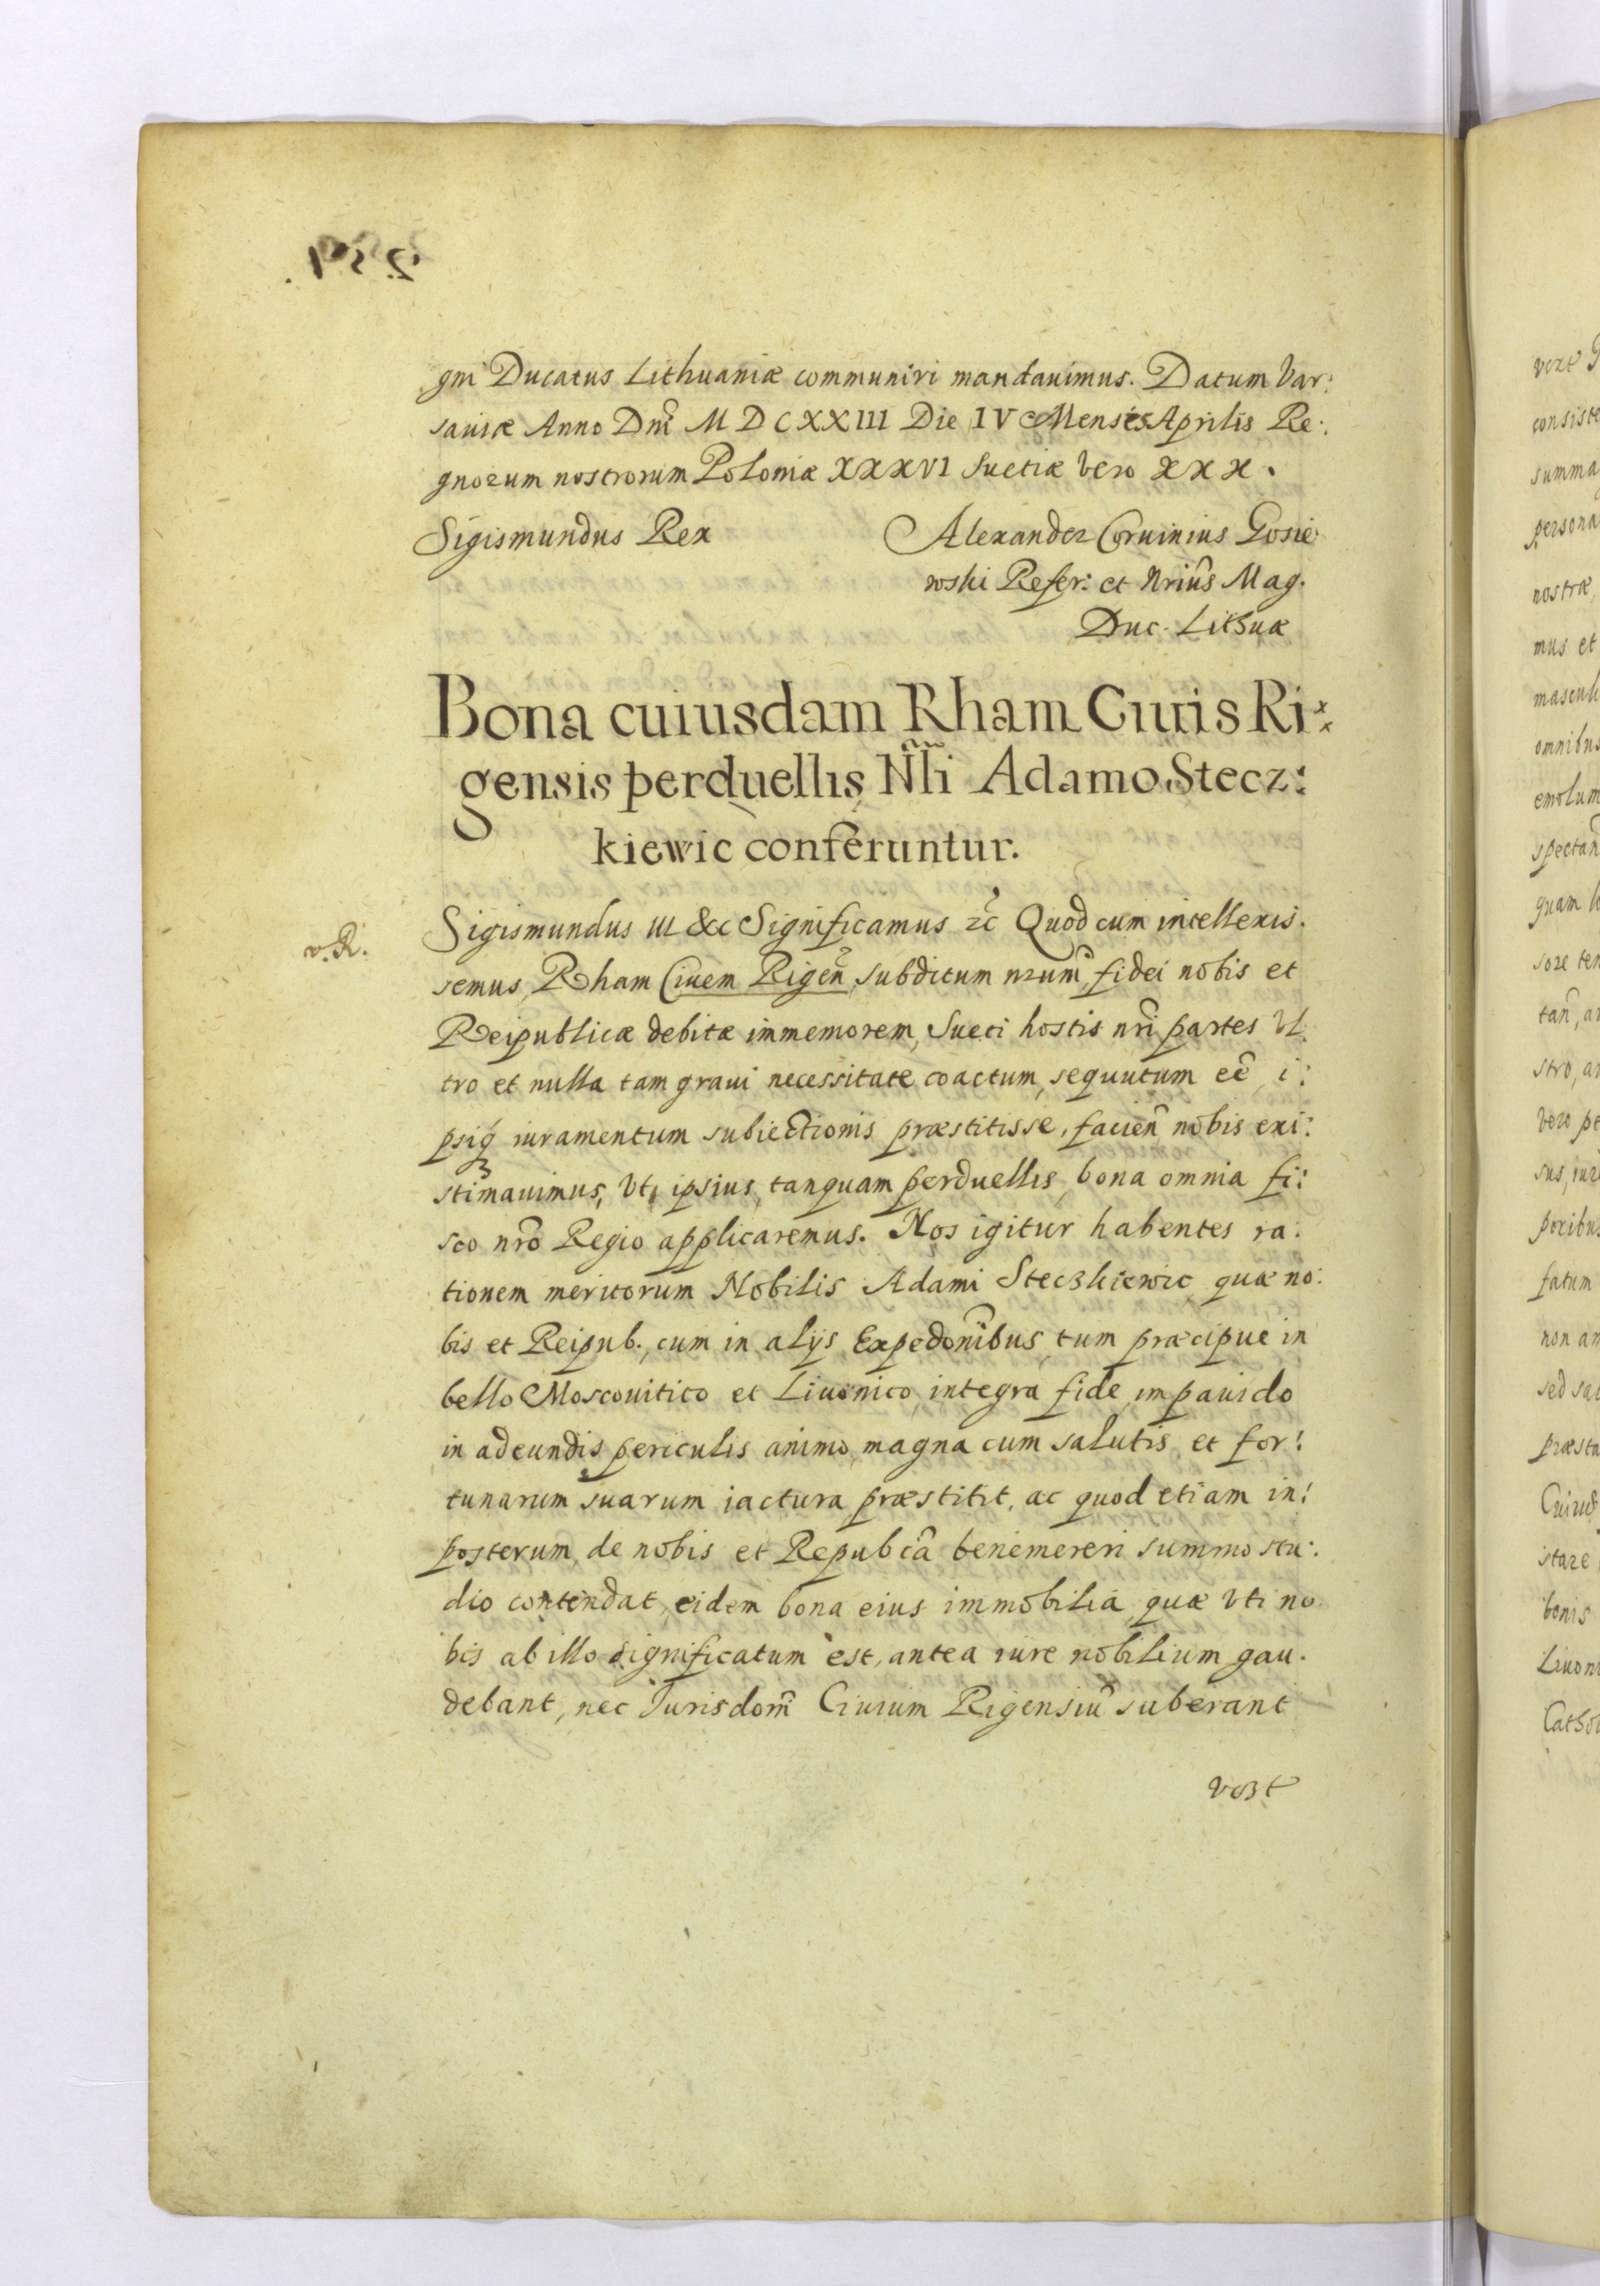 gni Ducatus Lithuaniæ communiri mandauimus. Datum Var:
sauiæ Anno Dni M D C XXIII Die IV Mensis Aprilis Re:
gnorum nostrorum Poloniæ XXXVI Suetiæ Vero XXX.
Sigismundus Rex
Alexander Coruinius Gosie:
wski Refer: et Nrius Mag.
Duc. Lithuæ
Bona cuiusdam Rham Ciuis Ri:
gensis perduellis Nli Adamo Stecz:
kiewic conferuntur.
v. R.
Sigismundus III &c Significamus &c Quod cum intellexis.
semus, Rham Ciuem Rigen, subditum nrum, fidei nobis et
Reipublicæ debitæ immemorem, Sueti hostis nri partes Vl
tro et nulla tam graui necessitate coactum, sequutum eē, i:
psiq iuramentum subiectionis præstitisse, facien nobis exi:
stimauimus, Vti ipsius, tanquam perduellis, bona omnia fi:
sco nro Regio applicaremus. Nos igitur habentes ra:
tionem meritorum Nobilis Adami Steczkiewic, quæ no:
bis et Reipub., cum in alijs Expedonibus, tum præcipue in
bello Moscouitico et Liuonico, integra fide, impauido
in adeundis periculis animo, magna cum salutis et for:
tunarum suarum iactura præstitit, ac quod etiam in:
posterum, de nobis et Repubca benemereri summo stu:
dio contendat, eidem bona eius immobilia, quæ Vti no
bis ab illo significatum est, antea iure nobilium gau.
debant, nec Jurisdom Ciuium Rigensiū suberant
vert